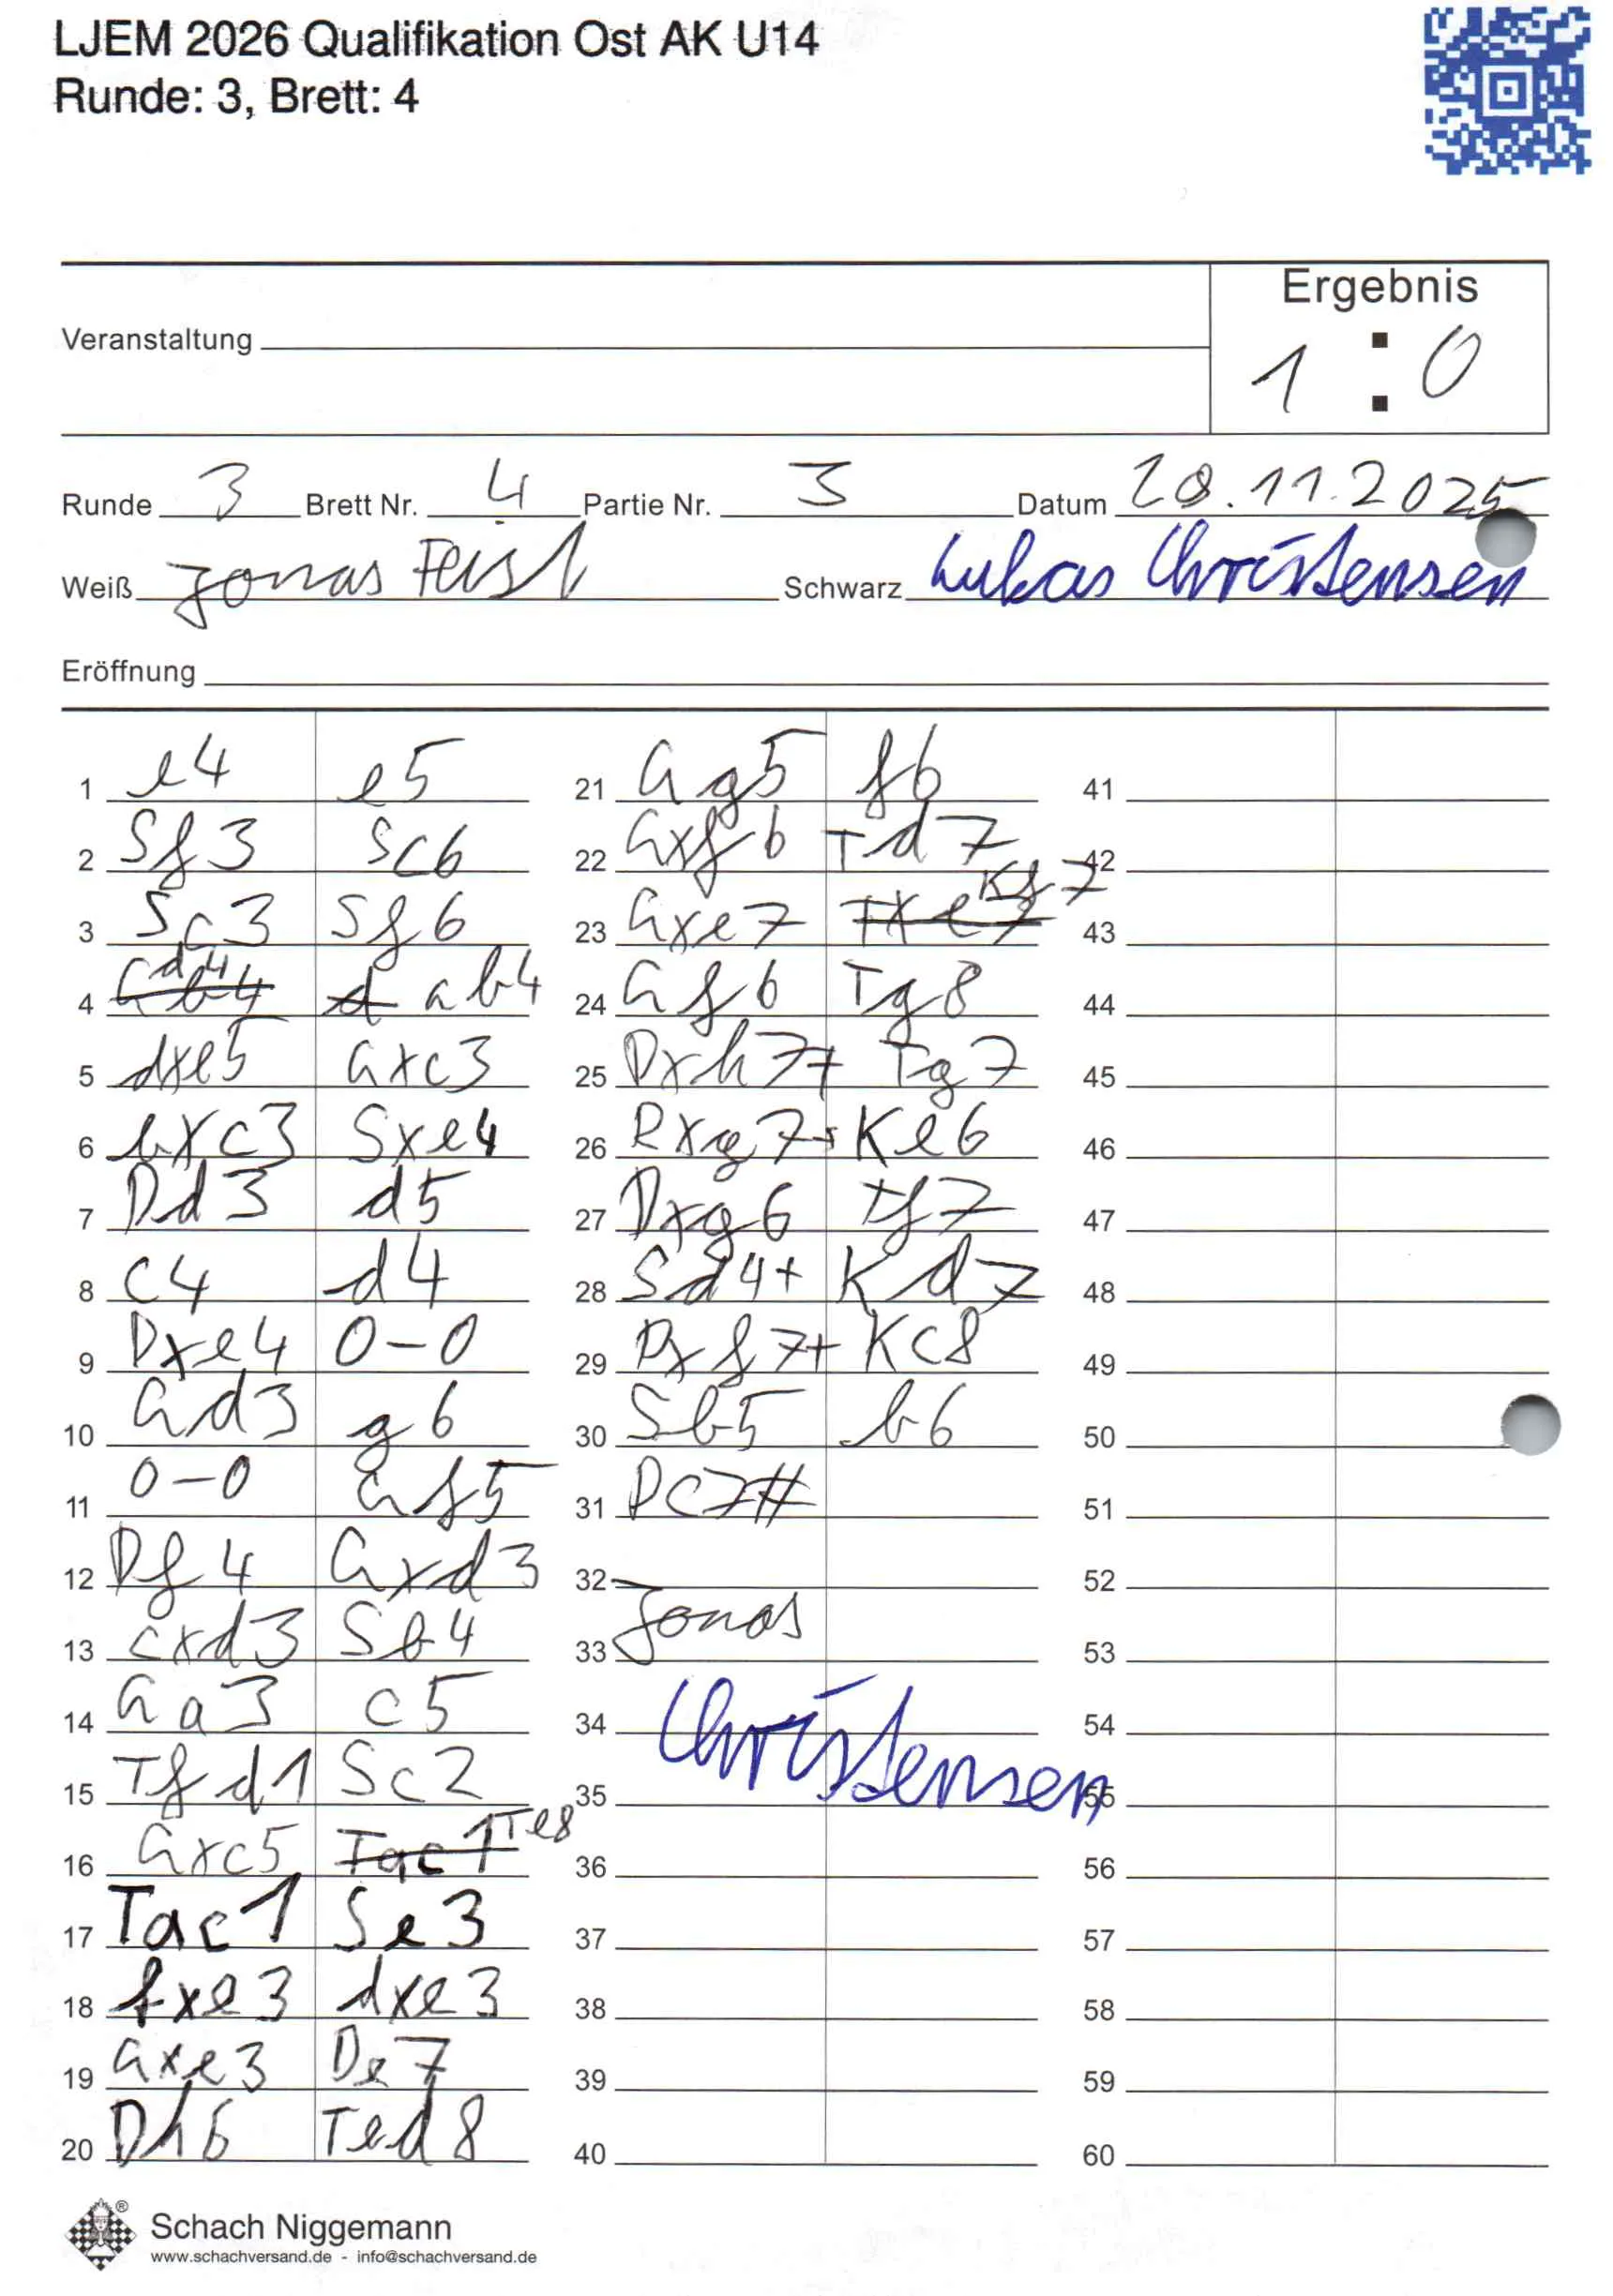 LJEM 2026 Qualifikation Ost AK U14
Runde: 3, Brett: 4
Ergebnis
Veranstaltung
1 : 0
Runde 3 Brett Nr. 4 Partie Nr. 3 Datum 28.11.2025
Weiß Jonas Feist Schwarz Lukas Christensen
Eröffnung
1 e4 e5 21 Gg5 f6 41
2 Sf3 Sc6 22 Gxf6 Td7 42
3 Sc3 Sf6 23 Gxe7 Txe7 Kf7 43
4 Gb4 d4 d Gb4 24 Gf6 Tg8 44
5 dxe5 Gxc3 25 Dxh7+ Tg7 45
6 bxc3 Sxe4 26 Dxg7+ Ke6 46
7 Dd3 d5 27 Dxg6 Tf7 47
8 c4 d4 28 Sd4+ Kd7 48
9 Dxe4 0-0 29 Dxf7+ Kc8 49
10 Gd3 g6 30 Sb5 b6 50
11 0-0 Gf5 31 Dc7# 51
12 Df4 Gxd3 32 52
13 cxd3 Sb4 33 Jonas 53
14 Ga3 c5 34 Christensen 54
15 Tfd1 Sc2 35 55
16 Gxc5 Tac1 Te8 36 56
17 Tac1 Se3 37 57
18 fxe3 dxe3 38 58
19 Gxe3 De7 39 59
20 Dh6 Ted8 40 60
Schach Niggemann
www.schachversand.de - info@schachversand.de